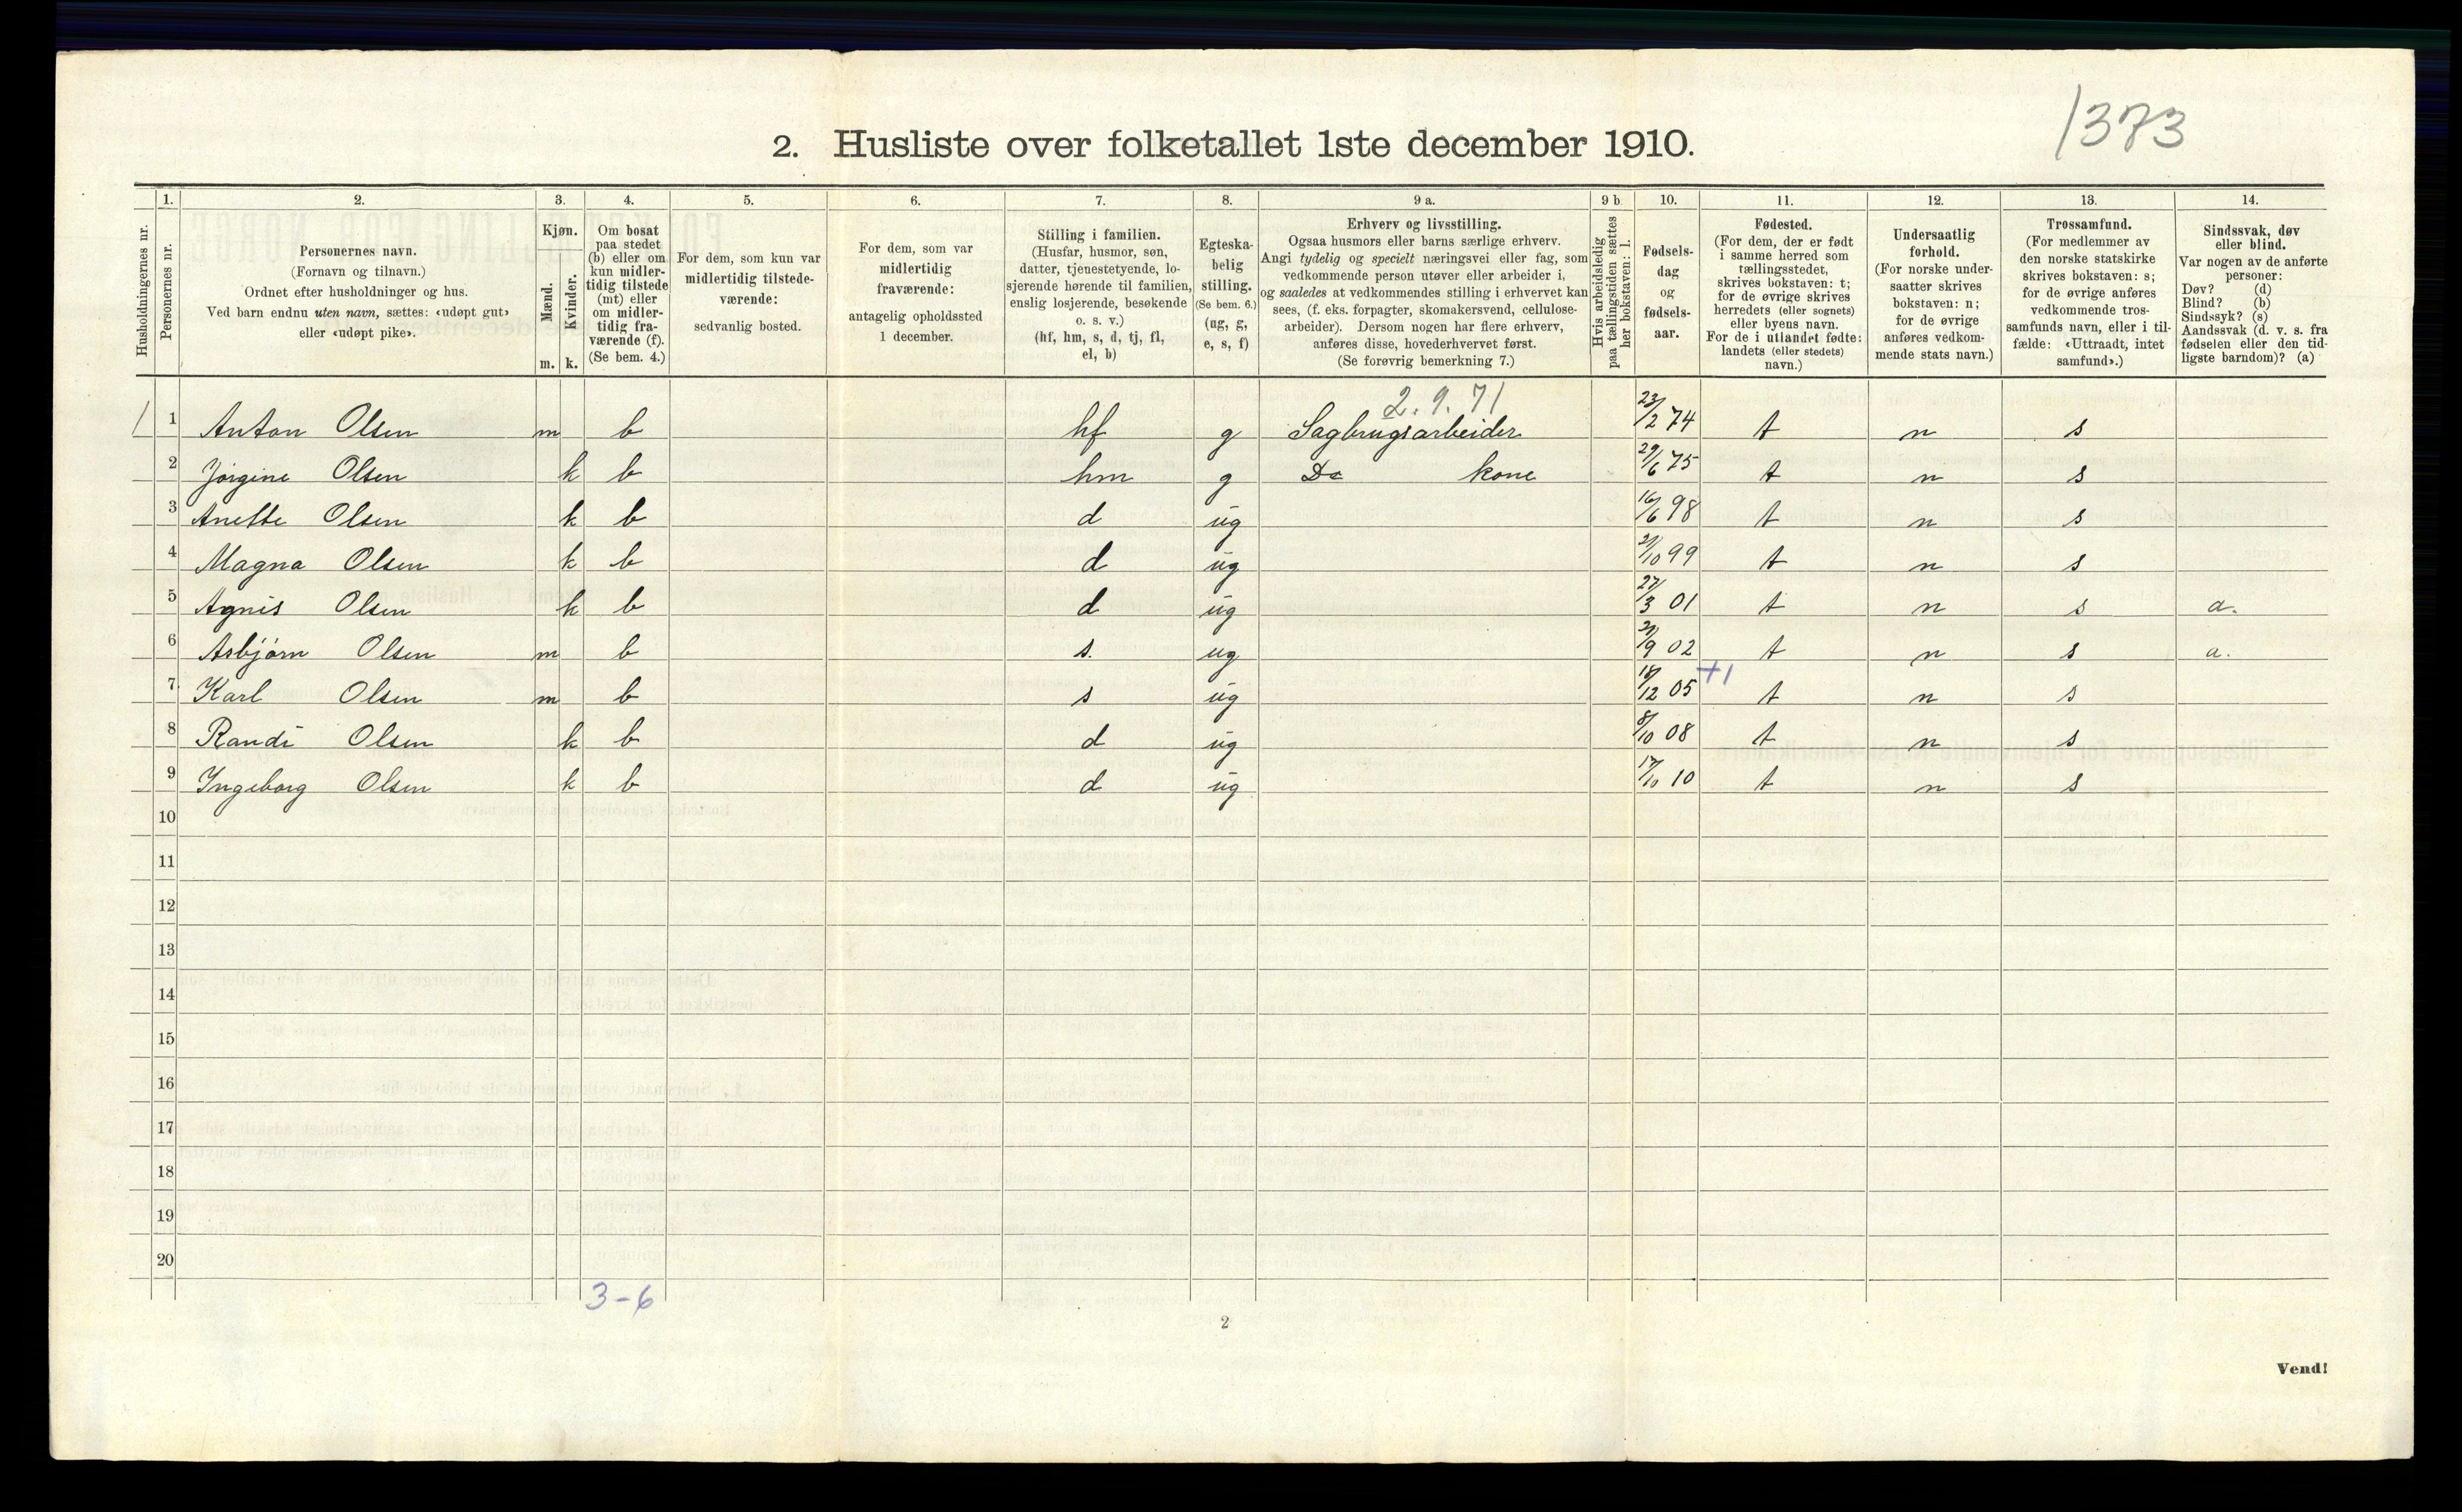 1373
2. Husliste over folketallet 1ste december 1910.
Husholdningernes nr.
1. Personernes nr.
2. Personernes navn.
(Fornavn og tilnavn.)
Ordnet efter husholdninger og hus.
Ved barn endnu uten navn, sættes: «udøpt gut»
eller «udøpt pike».
3. Kjøn.
Mænd. m.
Kvinder. k.
4. Om bosat
paa stedet
(b) eller om
kun midler-
tidig tilstede
(mt) eller
om midler-
tidig fra-
værende (f).
(Se bem. 4.)
5. For dem, som kun var
midlertidig tilstede-
værende:
sedvanlig bosted.
6. For dem, som var
midlertidig
fraværende:
antagelig opholdssted
1 december.
7. Stilling i familien.
(Husfar, husmor, søn,
datter, tjenestetyende, lo-
sjerende hørende til familien,
enslig losjerende, besøkende
o. s. v.)
(hf, hm, s, d, tj, fl,
el, b)
8. Egteska-
belig
stilling.
(Se bem. 6.)
(ug, g,
e, s, f)
9 a. Erhverv og livsstilling.
Ogsaa husmors eller barns særlige erhverv.
Angi tydelig og specielt næringsvei eller fag, som
vedkommende person utøver eller arbeider i,
og saaledes at vedkommendes stilling i erhvervet kan
sees, (f. eks. forpagter, skomakersvend, cellulose-
arbeider). Dersom nogen har flere erhverv,
anføres disse, hovederhvervet først.
(Se forøvrig bemerkning 7.)
9 b Hvis arbeidsledig
paa tællingstiden sættes
her bokstaven: l.
10. Fødsels-
dag
og
fødsels-
aar.
11. Fødested.
(For dem, der er født
i samme herred som
tællingsstedet,
skrives bokstaven: t;
for de øvrige skrives
herredets (eller sognets)
eller byens navn.
For de i utlandet fødte:
landets (eller stedets)
navn.)
12. Undersaatlig
forhold.
(For norske under-
saatter skrives
bokstaven: n;
for de øvrige
anføres vedkom-
mende stats navn.)
13. Trossamfund.
(For medlemmer av
den norske statskirke
skrives bokstaven: s;
for de øvrige anføres
vedkommende tros-
samfunds navn, eller i til-
fælde: «Uttraadt, intet
samfund».)
14. Sindssvak, døv
eller blind.
Var nogen av de anførte
personer:
Døv? (d)
Blind? (b)
Sindssyk? (s)
Aandssvak (d. v. s. fra
fødselen eller den tid-
ligste barndom)? (a)
2.9.71
1 1 Anton Olsen m b hf g Sagbrugsarbeider 23/2 74 t n s
2 Jørgine Olsen k b hm g Do kone 29/6 75 t n s
3 Anette Olsen k b d ug 16/6 98 t n s
4 Magna Olsen k b d ug 21/10 99 t n s
5 Agnis Olsen k b d ug 27/3 01 t n s a.
6 Asbjørn Olsen m b s. ug 21/9 02 t n s a.
7. Karl Olsen m b s ug 18/12 05 +1 t n s
8 Randi Olsen k b d ug 8/10 08 t n s
9 Ingeborg Olsen k b d ug 17/10 10 t n s
10
11
12
13
14
15
16
17
18
19
20
3-6
2
Vend!